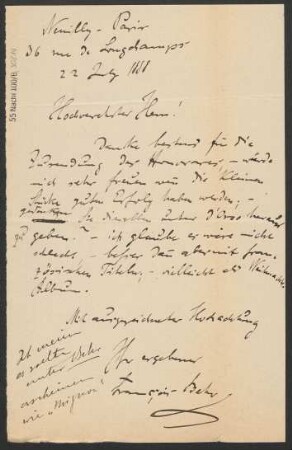 Neuilly - Paris
36 rue de Longchamps
22 July 1881
Hochverehrter Herr!
Danke bestens für die
Zusendung des Honorares - würde
mich sehr freuen wenn die kleinen
Stücke guten Erfolg haben werden, -
Sie dieselben unter d'Orso heraus
zu geben? - ich glaube es wäre nicht
schlecht, - besser dann aber mit fran-
zösischen Titeln; - vielleicht als Weihnachts-
Album.
Mit ausgezeichneter Hochachtung
Ihr ergebener
François Behr
Ich meine
es sollte
unter Behr
erscheinen
wie "Mignon"
55 Nachl 100/B